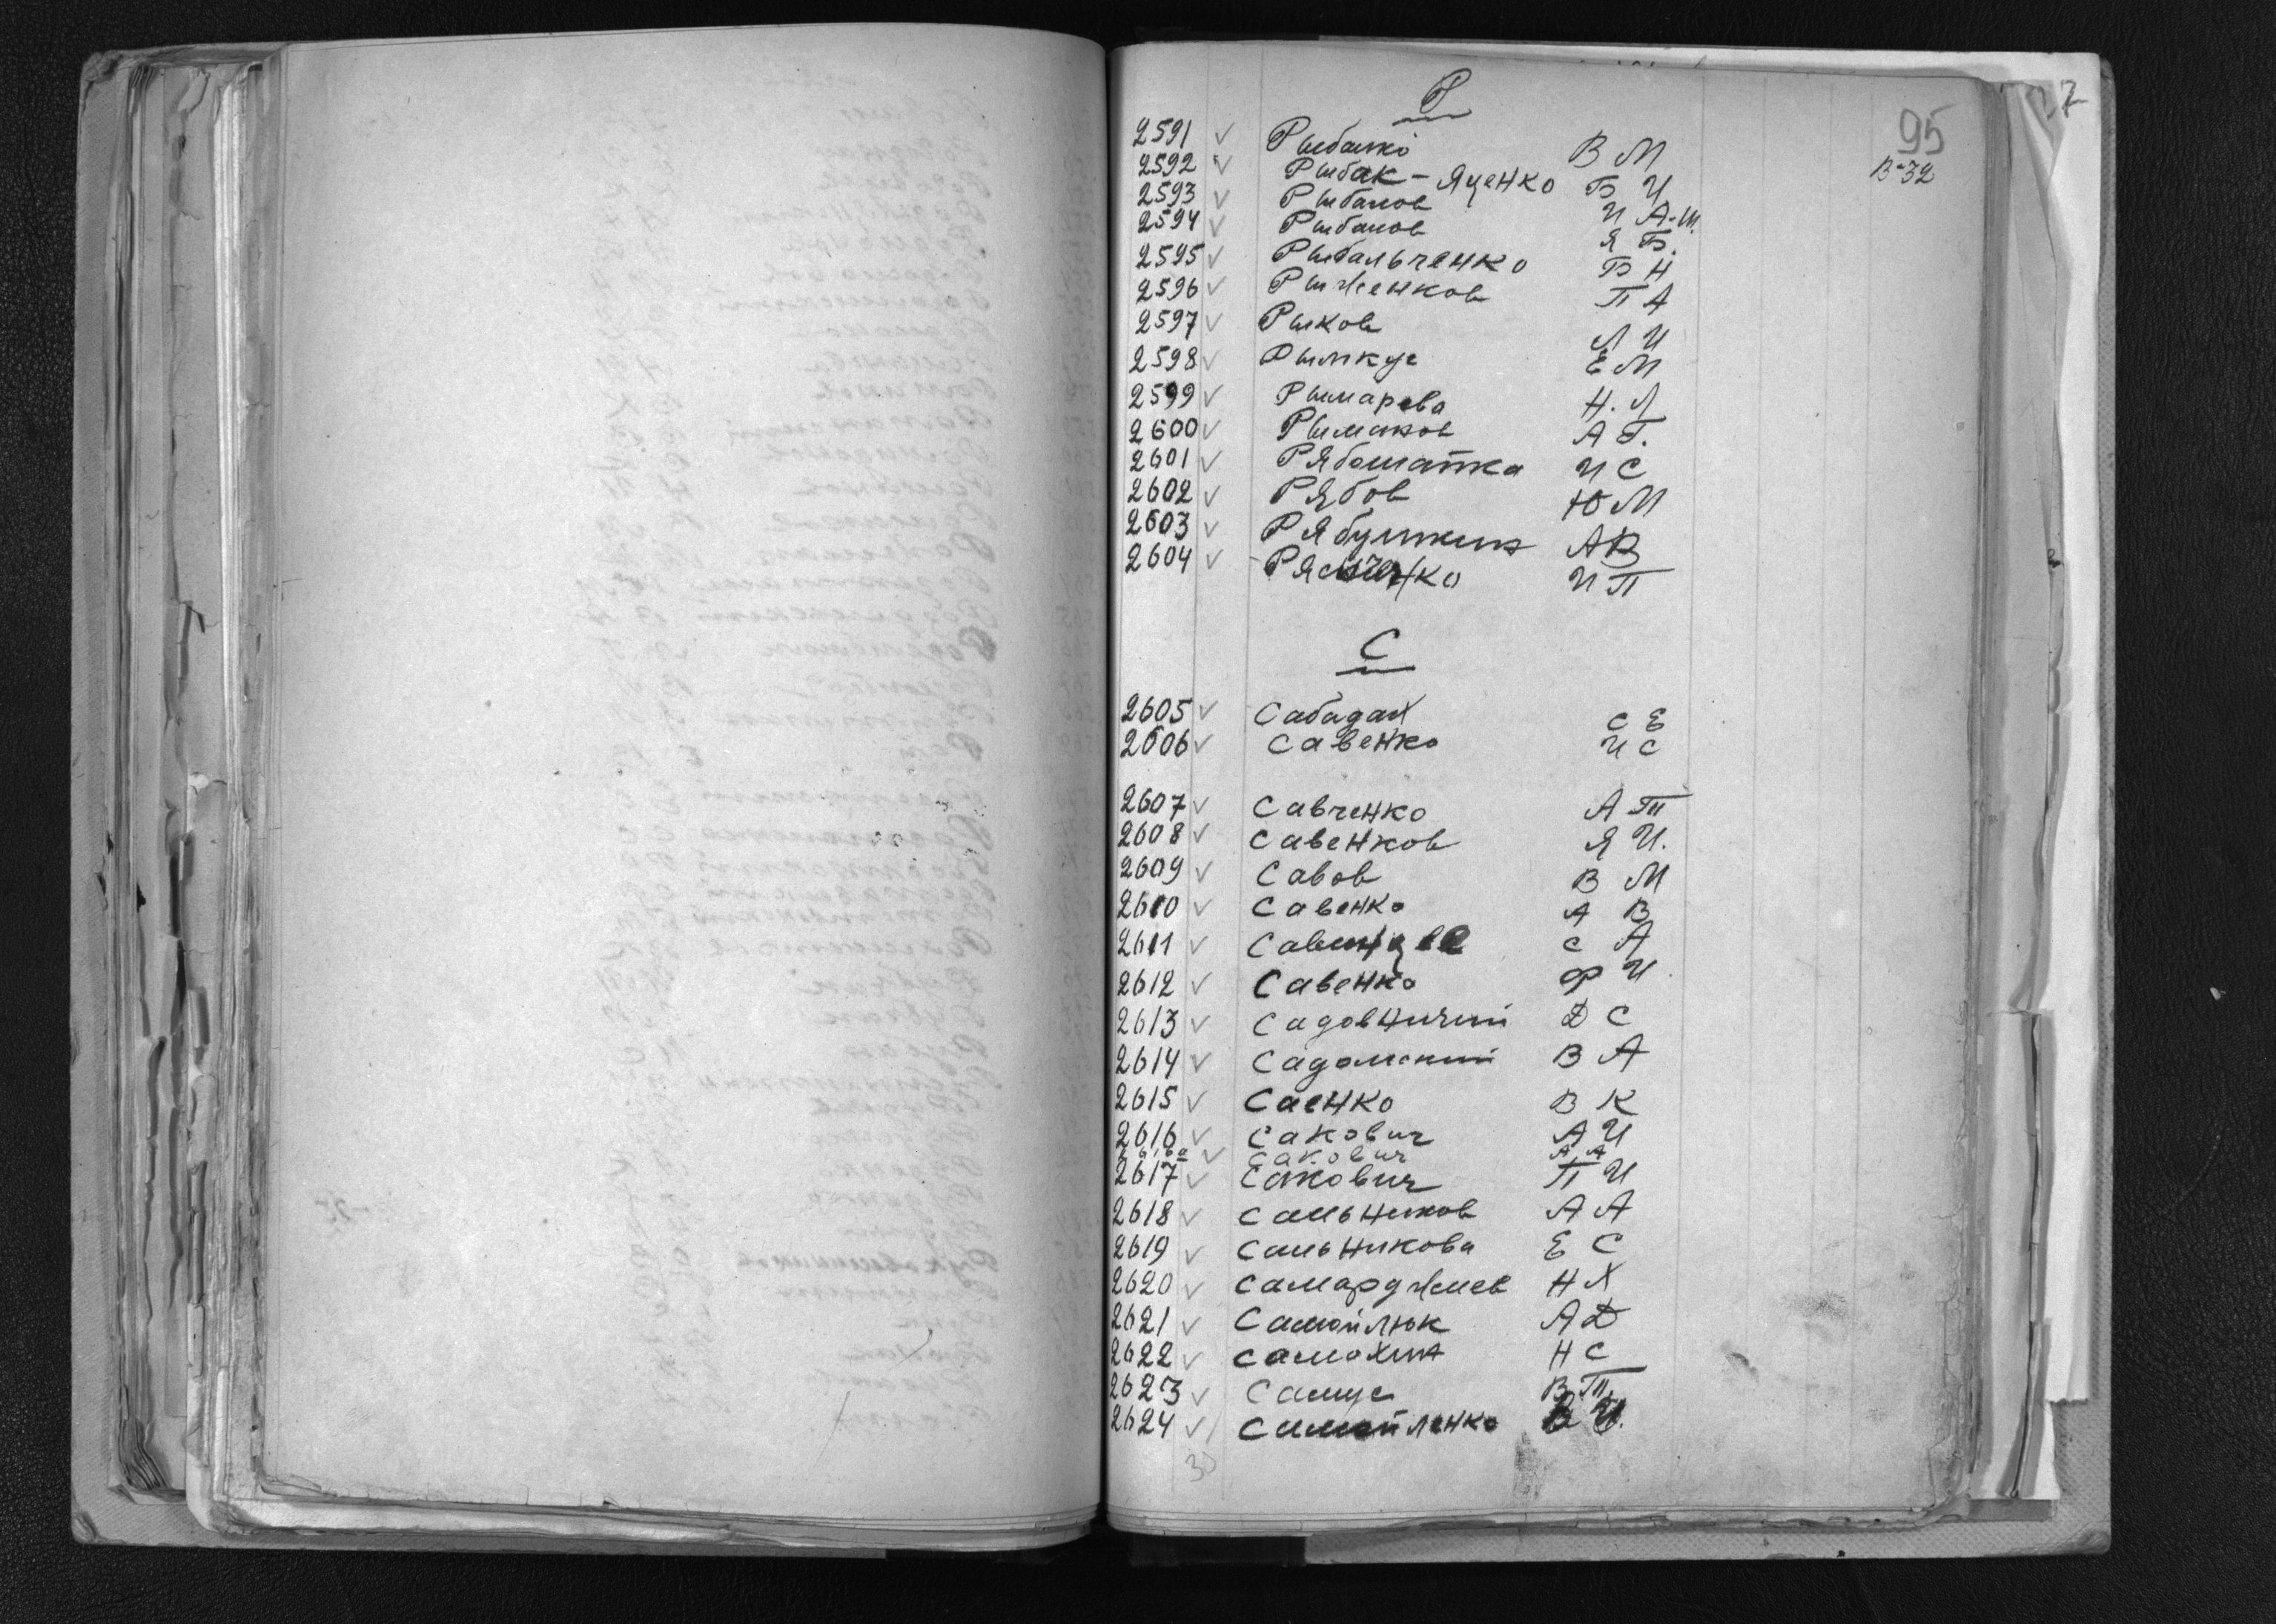 Р
95
2591 ✓ Рыбалко В М
В-32
2592 ✓ Рыбак-Яценко Б И
2593 ✓ Рыбаков И А-Ш.
2594 ✓ Рыбаков Я Б.
2595 ✓ Рыбальченко Б Н
2596 ✓ Рыженков П А
2597 ✓ Рыков Л И
2598 ✓ Рымкус Е М
2599 ✓ Рымарева Н. Л
2600 ✓ А Г.
2601 ✓ Рябошапка И С
2602 ✓ Рябов Ю М
2603 ✓ Рябушкин А В
2604 ✓ И П
С
2605 ✓ Сабадах С Е
2606 ✓ Савенко И С
2607 ✓ Савченко А Т
2608 ✓ Савенков Я И.
2609 ✓ Савов В М
2610 ✓ Савенко А В
2611 ✓ С А
2612 ✓ Савенко Ф И
2613 ✓ Садовничий Д С
2614 ✓ Садомский В А
2615 ✓ Саенко В К
2616 ✓ Сакович А И
2616а ✓ Сакович А А
2617 ✓ Сакович П И
2618 ✓ Сальников А А
2619 ✓ Сальникова Е С
2620 ✓ Самарджиев Н Х
2621 ✓ Самойлюк А Д
2622 ✓ Самохин Н С
2623 ✓ Самус В Т.
2624 ✓ Самойленко В И.